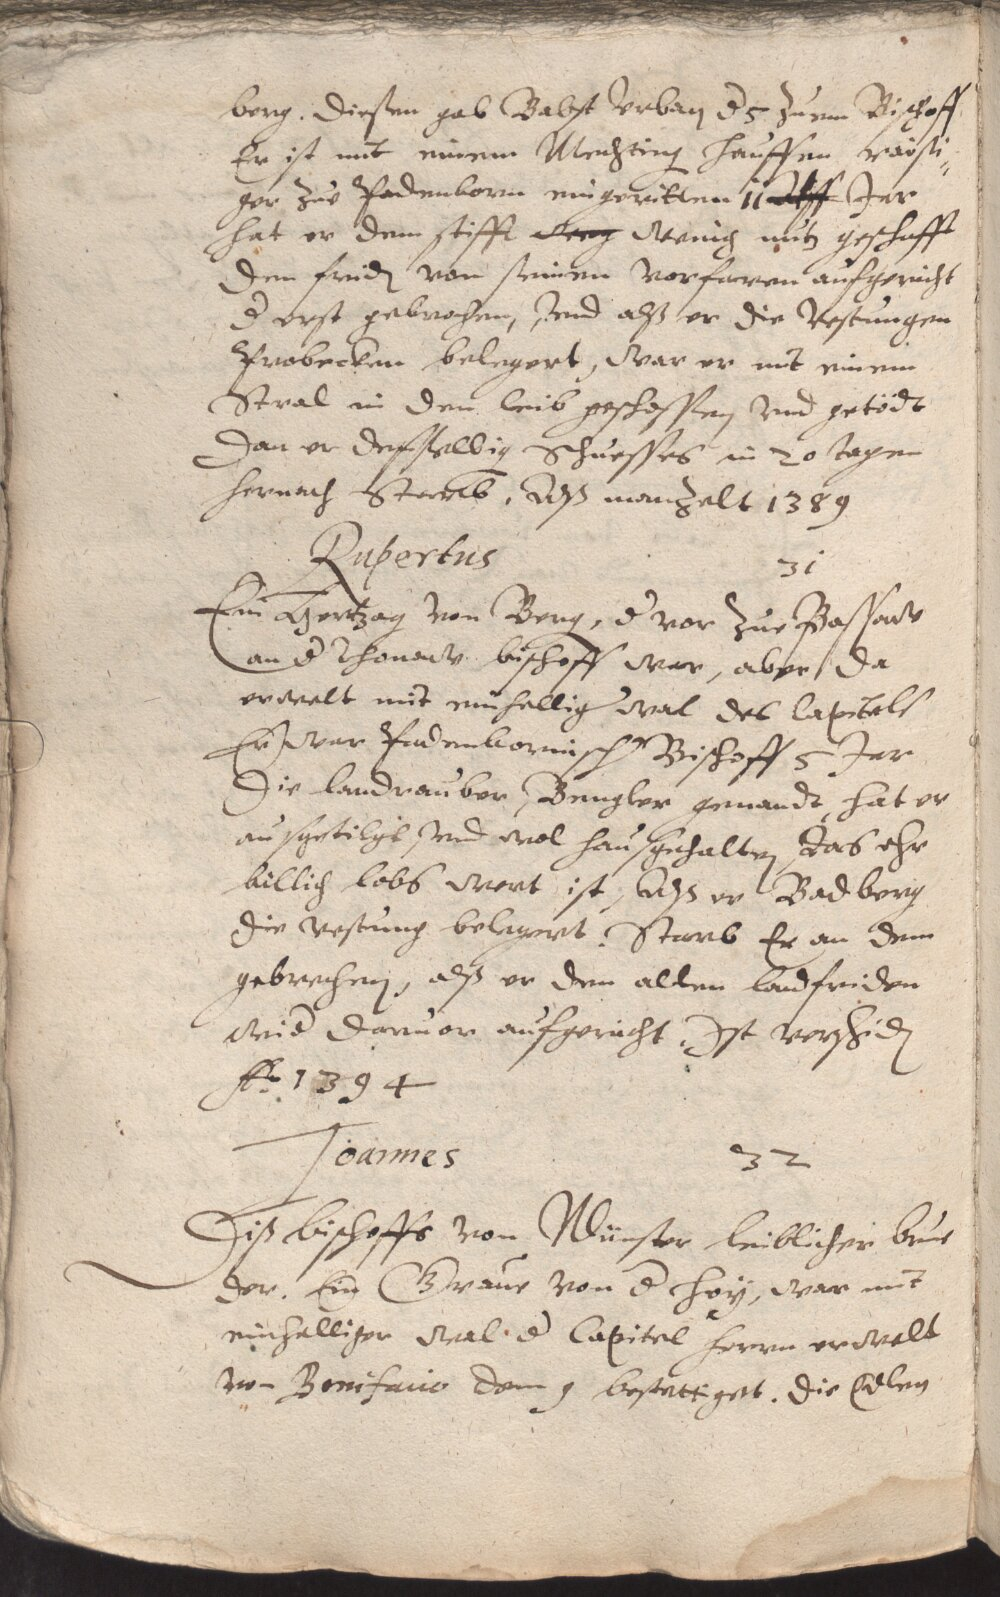 berg. Diesen gab Babst Urban d 5 zuem Bischoff
Er ist mit einem Mechting hauffen raisi-
ger zue Padenborn eingeritten 11 Jar
hat er dem stifft wenig nutz geschafft
Den fridn von seinen vorfaren aufgericht
d erst gebrochen, und alß er die Vestungen
Probecken belegert, war er mit einem
Stral in den leib geschossen und getödt
Dan er desselbig Schuesses in 20 tagen
hernach Starb. Alß man zelt 1389
Rupertus 31
Ein Hertzog von Berg, d vor zue Passaw
an d Thonaw bischoff war, aber da
erwelt mit einhellig wal des Capitels
Er war Padenbornisch Bischoff 5 Jar
Die landrauber, Bengler genandt, hat er
ausgetilgt und wol hausgehalten, das ehr
billich lobs wert ist, Alß er Badberg
die Vestung belegert. Starb Er an dem
gebrechen, alß er den alten landfriden
wid daruor aufgericht. Ist verschidn
Ao. 1394
Joannes 32
Diß bischoffs von Münster leiblicher brue
der. Ein Graue von d Hoy, war mit
einhelliger wal d Capitel herrn erwelt
von Bonifacio dem 9 bestettiget. Die Edlen